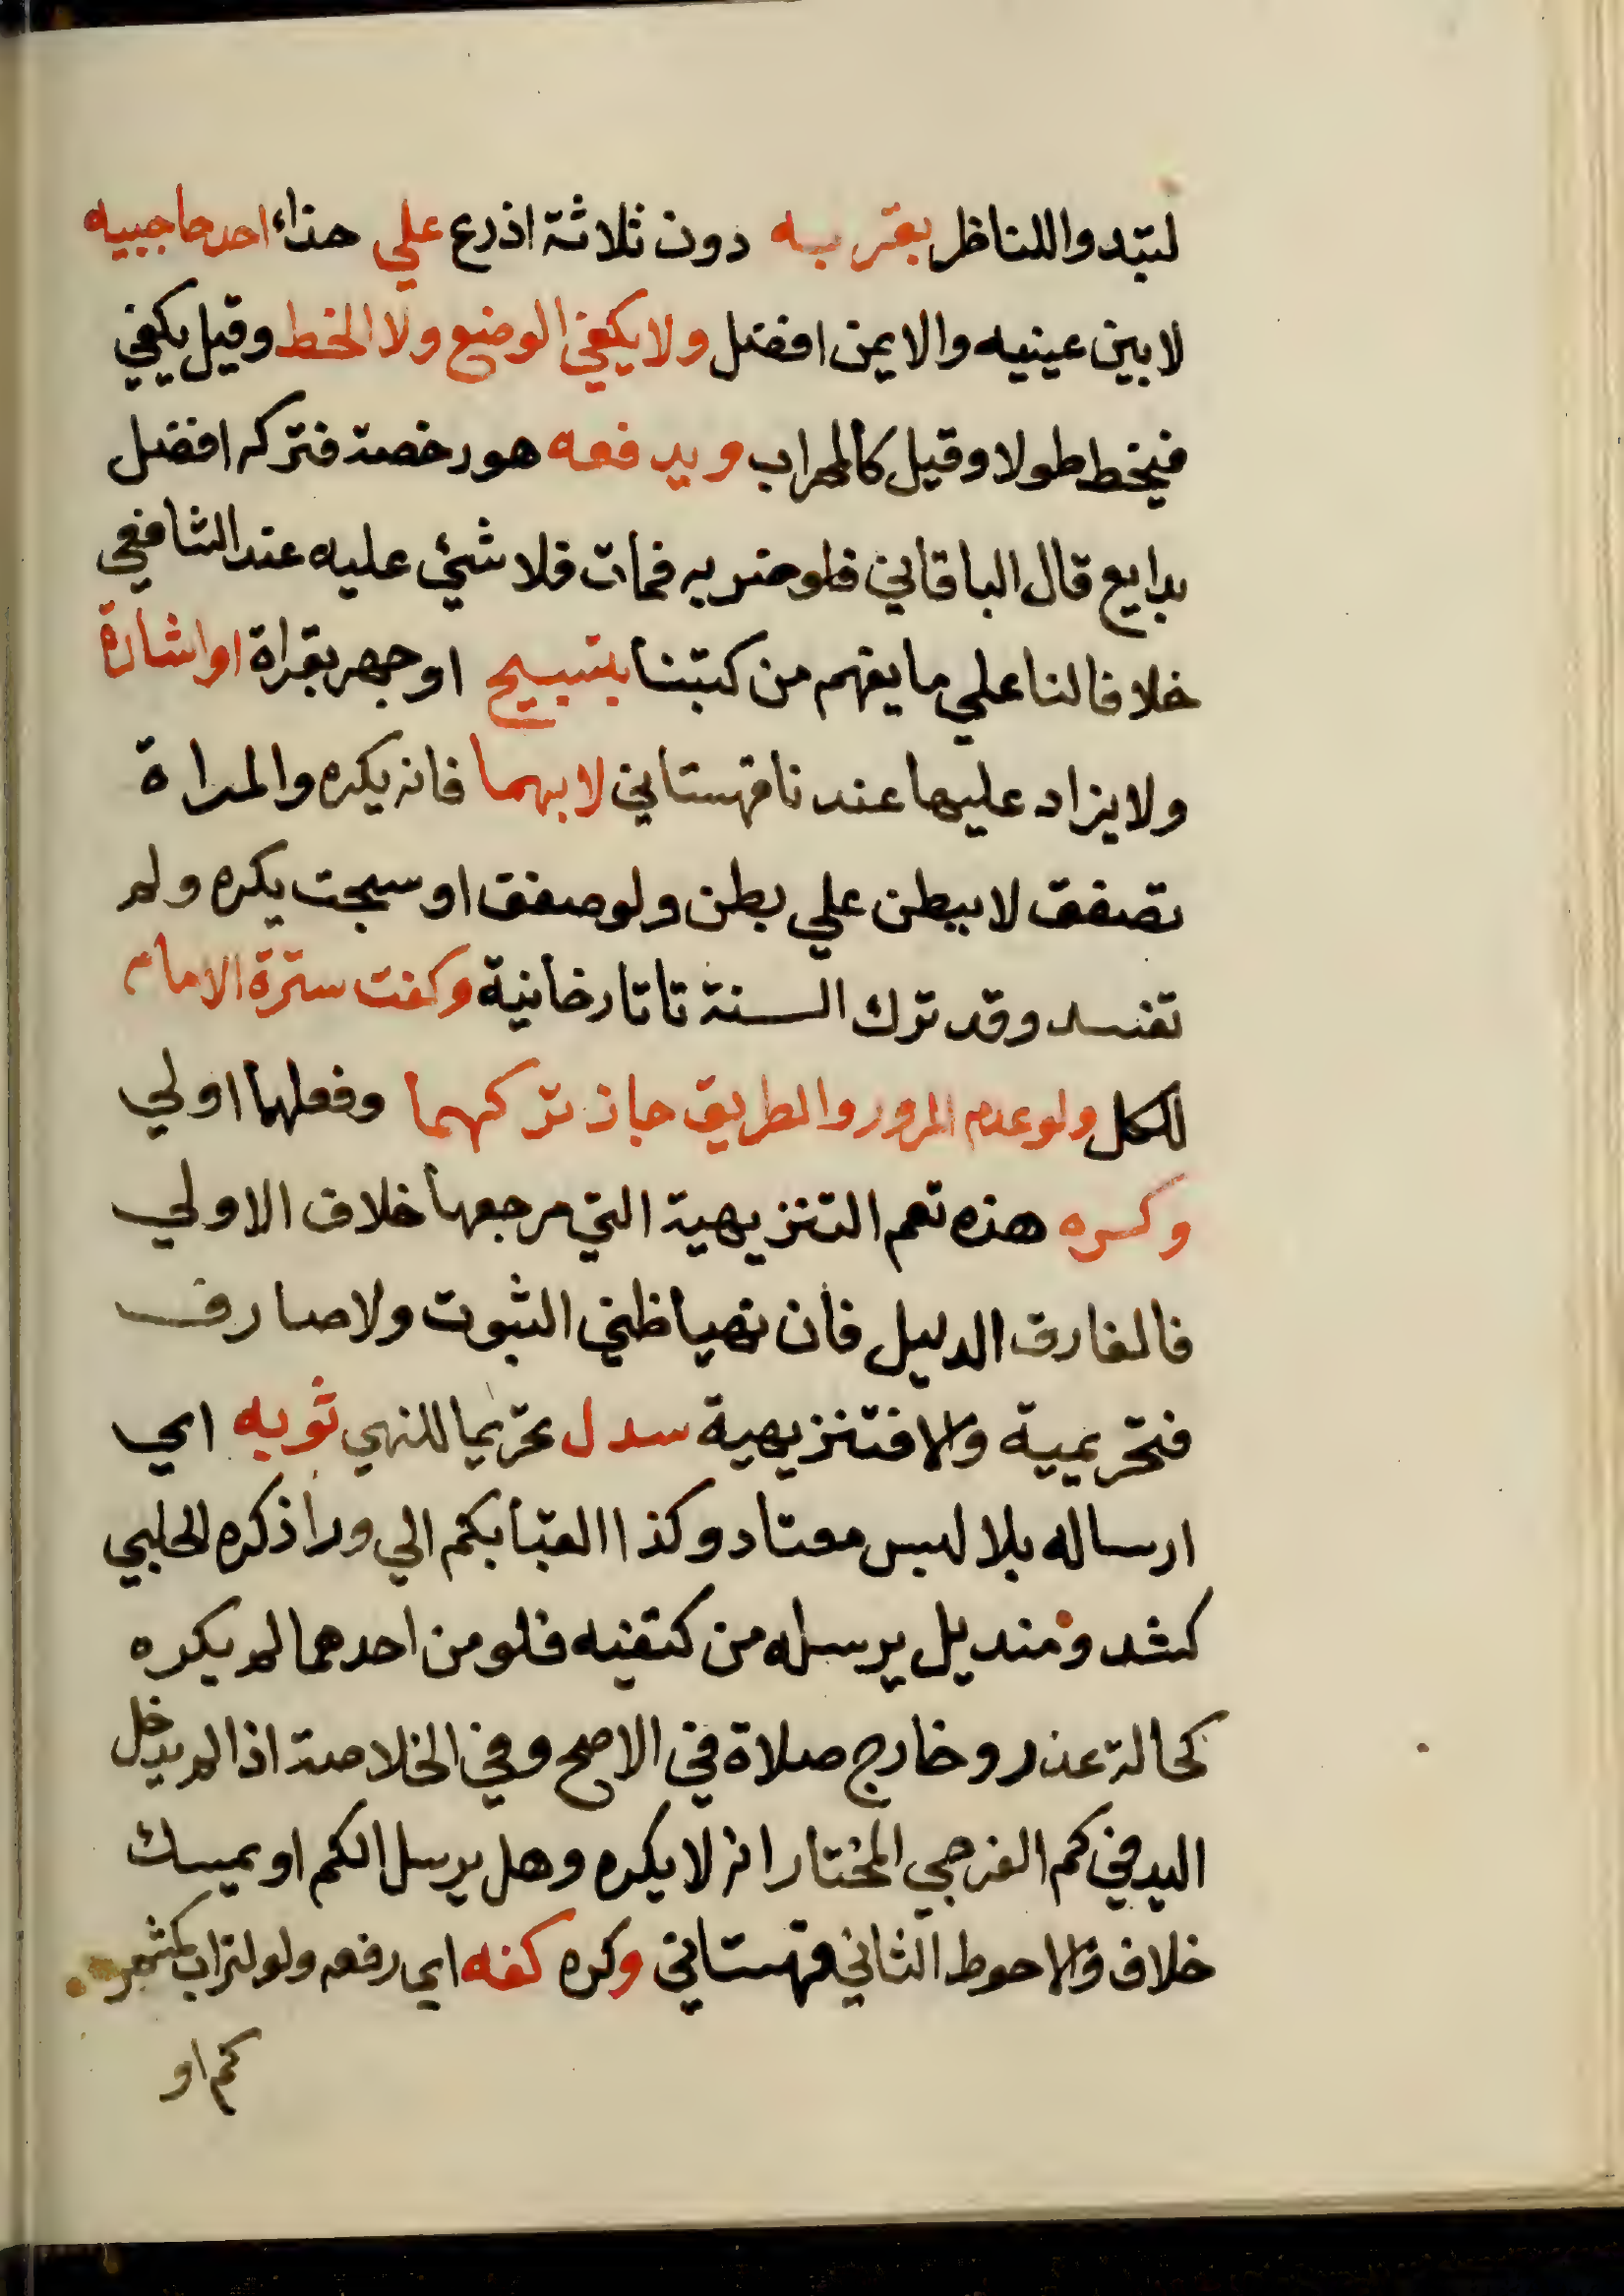 لتبدو للناظر بقربه دون ثلاثة اذرع علي حذاء احد حاجبيه
لا بين عينيه والايمن افضل ولا يكفي الوضع ولا الخط وقيل يكفي
فيخط طولا وقيل كالمحراب ويدفعه هو رخصة فتركه افضل
بدايع قال الباقاني فلو ضربه فمات فلا شئي عليه عند الشافعي
خلافا لنا علي ما يفهم من كتبنا بتسبيح او جهر بقراة او اشارة
ولا يزاد عليها عندنا قهستاني لا بهما فانه يكره والمراة
تصفق لا ببطن علي بطن ولو صفق او سبحت يكره ولم
تفسد وقد ترك السنة تاتارخانية وكفت سترة الامام
للكل ولو عدم المرور والطريق جاز تركهما وفعلهما اولي
وكره هذه تعم التنزيهية التي مرجعها خلاف الاولي
فالفارق الدليل فان نهيا ظني الثبوت ولا صارف
فتحريمية والا فتنزيهية سدل تحريما للنهي ثوبه اي
ارساله بلا لبس معتاد وكذا القبا بكم الي ورا ذكره الحلبي
كشد ومنديل يرسله من كتفيه فلو من احدهما لم يكره
كحالة عذر وخارج صلاة في الاصح وفي الخلاصة اذا لم يدخل
اليد في كم الفرجي المختار انه لا يكره وهل يرسل الكم او يمسك
خلاف والاحوط الثاني قهستاني وكره كفه اي رفعه ولو لتراب كمشمر
كم او